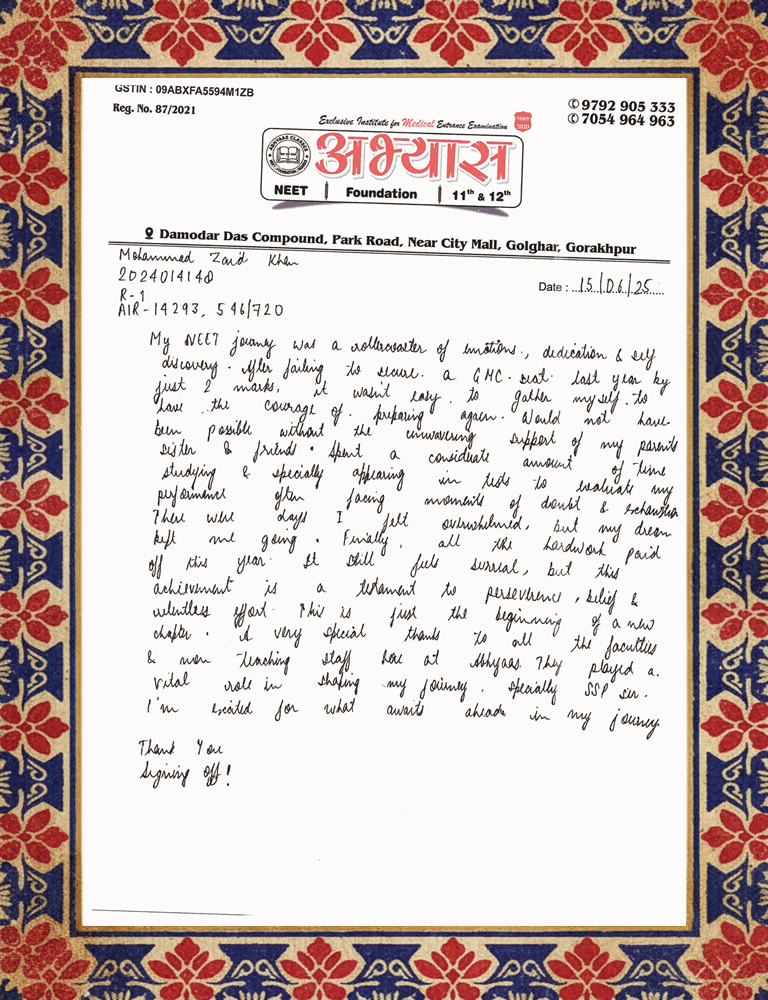 GSTIN : 09ABXFA5594M1ZB
Reg. No. 87/2021
✆ 9792 905 333
✆ 7054 964 963
Exclusive Institute for Medical Entrance Examination
Since 2020
ABHYAAS CLASSES
अभ्यास
NEET | Foundation | 11th & 12th
Damodar Das Compound, Park Road, Near City Mall, Golghar, Gorakhpur
Mohammed Zaid Khan
Date : 15/06/25
2024014148
R-1
AIR-14293, 546/720
My NEET journey was a rollercoaster of emotions, dedication & self
discovery. After failing to secure a GMC seat last year by
just 2 marks, it wasn't easy to gather myself to
have the courage of preparing again. Would not have
been possible without the unwavering support of my parents
sister & friends. Spent a considerate amount of time
studying & specially appearing in tests to evaluate my
performence often facing moments of doubt & exhaustion
There were days I felt overwhelmed, but my dream
kept me going. Finially, all the hardwork paid
off this year. It still feels surreal, but this
achievement is a testament to perseverence, belief &
relentless effort. This is just the beginning of a new
chapter. A very special thanks to all the faculties
& non teaching staff here at Abhyaas. They played a
vital role in shaping my journey, specially SSP sir.
I'm excited for what awaits ahead in my journey
Thank You
Signing off!